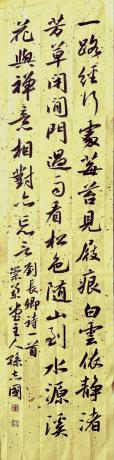 一路經行處莓苔見屐痕白雲依静渚
芳草閉閒門過雨看松色隨山到水源溪
花與禪意相對亦忘言劉長卿詩一首
堂主人孫亦國